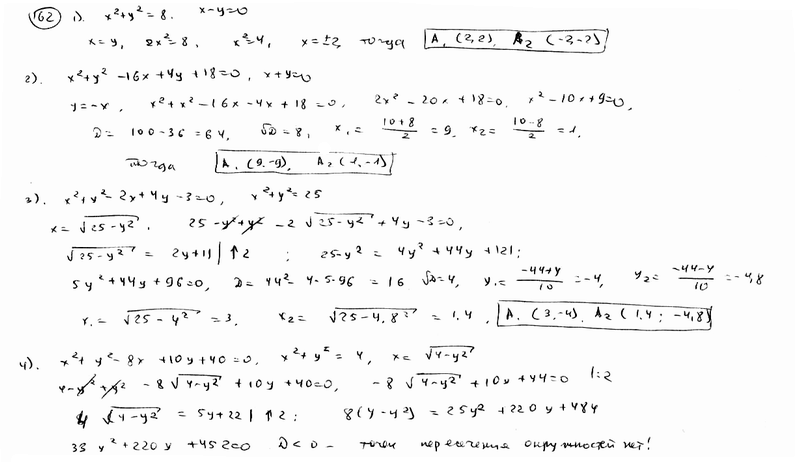 162 1). x²+y²=8. x-y=0
x=y, 2x²=8, x²=4, x=±2, тогда A₁(2,2), A₂(-2,-2)
2). x²+y²-16x+4y+18=0, x+y=0
y=-x, x²+x²-16x-4x+18=0, 2x²-20x+18=0. x²-10x+9=0,
D=100-36=64, √D=8, x₁=(10+8)/2=9, x₂=(10-8)/2=1.
тогда A₁(9,-9), A₂(1,-1)
3). x²+y²-2x+4y-3=0, x²+y²=25
x=√(25-y²). 25-y²+y²-2√(25-y²)+4y-3=0,
√(25-y²)=2y+11|↑2; 25-y²=4y²+44y+121;
5y²+44y+96=0, D=44²-4·5·96=16 √D=4, y₁=(-44+4)/10=-4, y₂=(-44-4)/10=-4,8
x₁=√(25-4²)=3, x₂=√(25-4,8²)=1.4, A₁(3,-4), A₂(1,4; -4,8)
4). x²+y²-8x+10y+40=0, x²+y²=4, x=√(4-y²)
4-y²+y²-8√(4-y²)+10y+40=0, -8√(4-y²)+10y+44=0 |:2
4√(4-y²)=5y+22|↑2: 8(4-y²)=25y²+220y+484
33y²+220y+452=0 D<0 - точек пересечения окружностей нет!